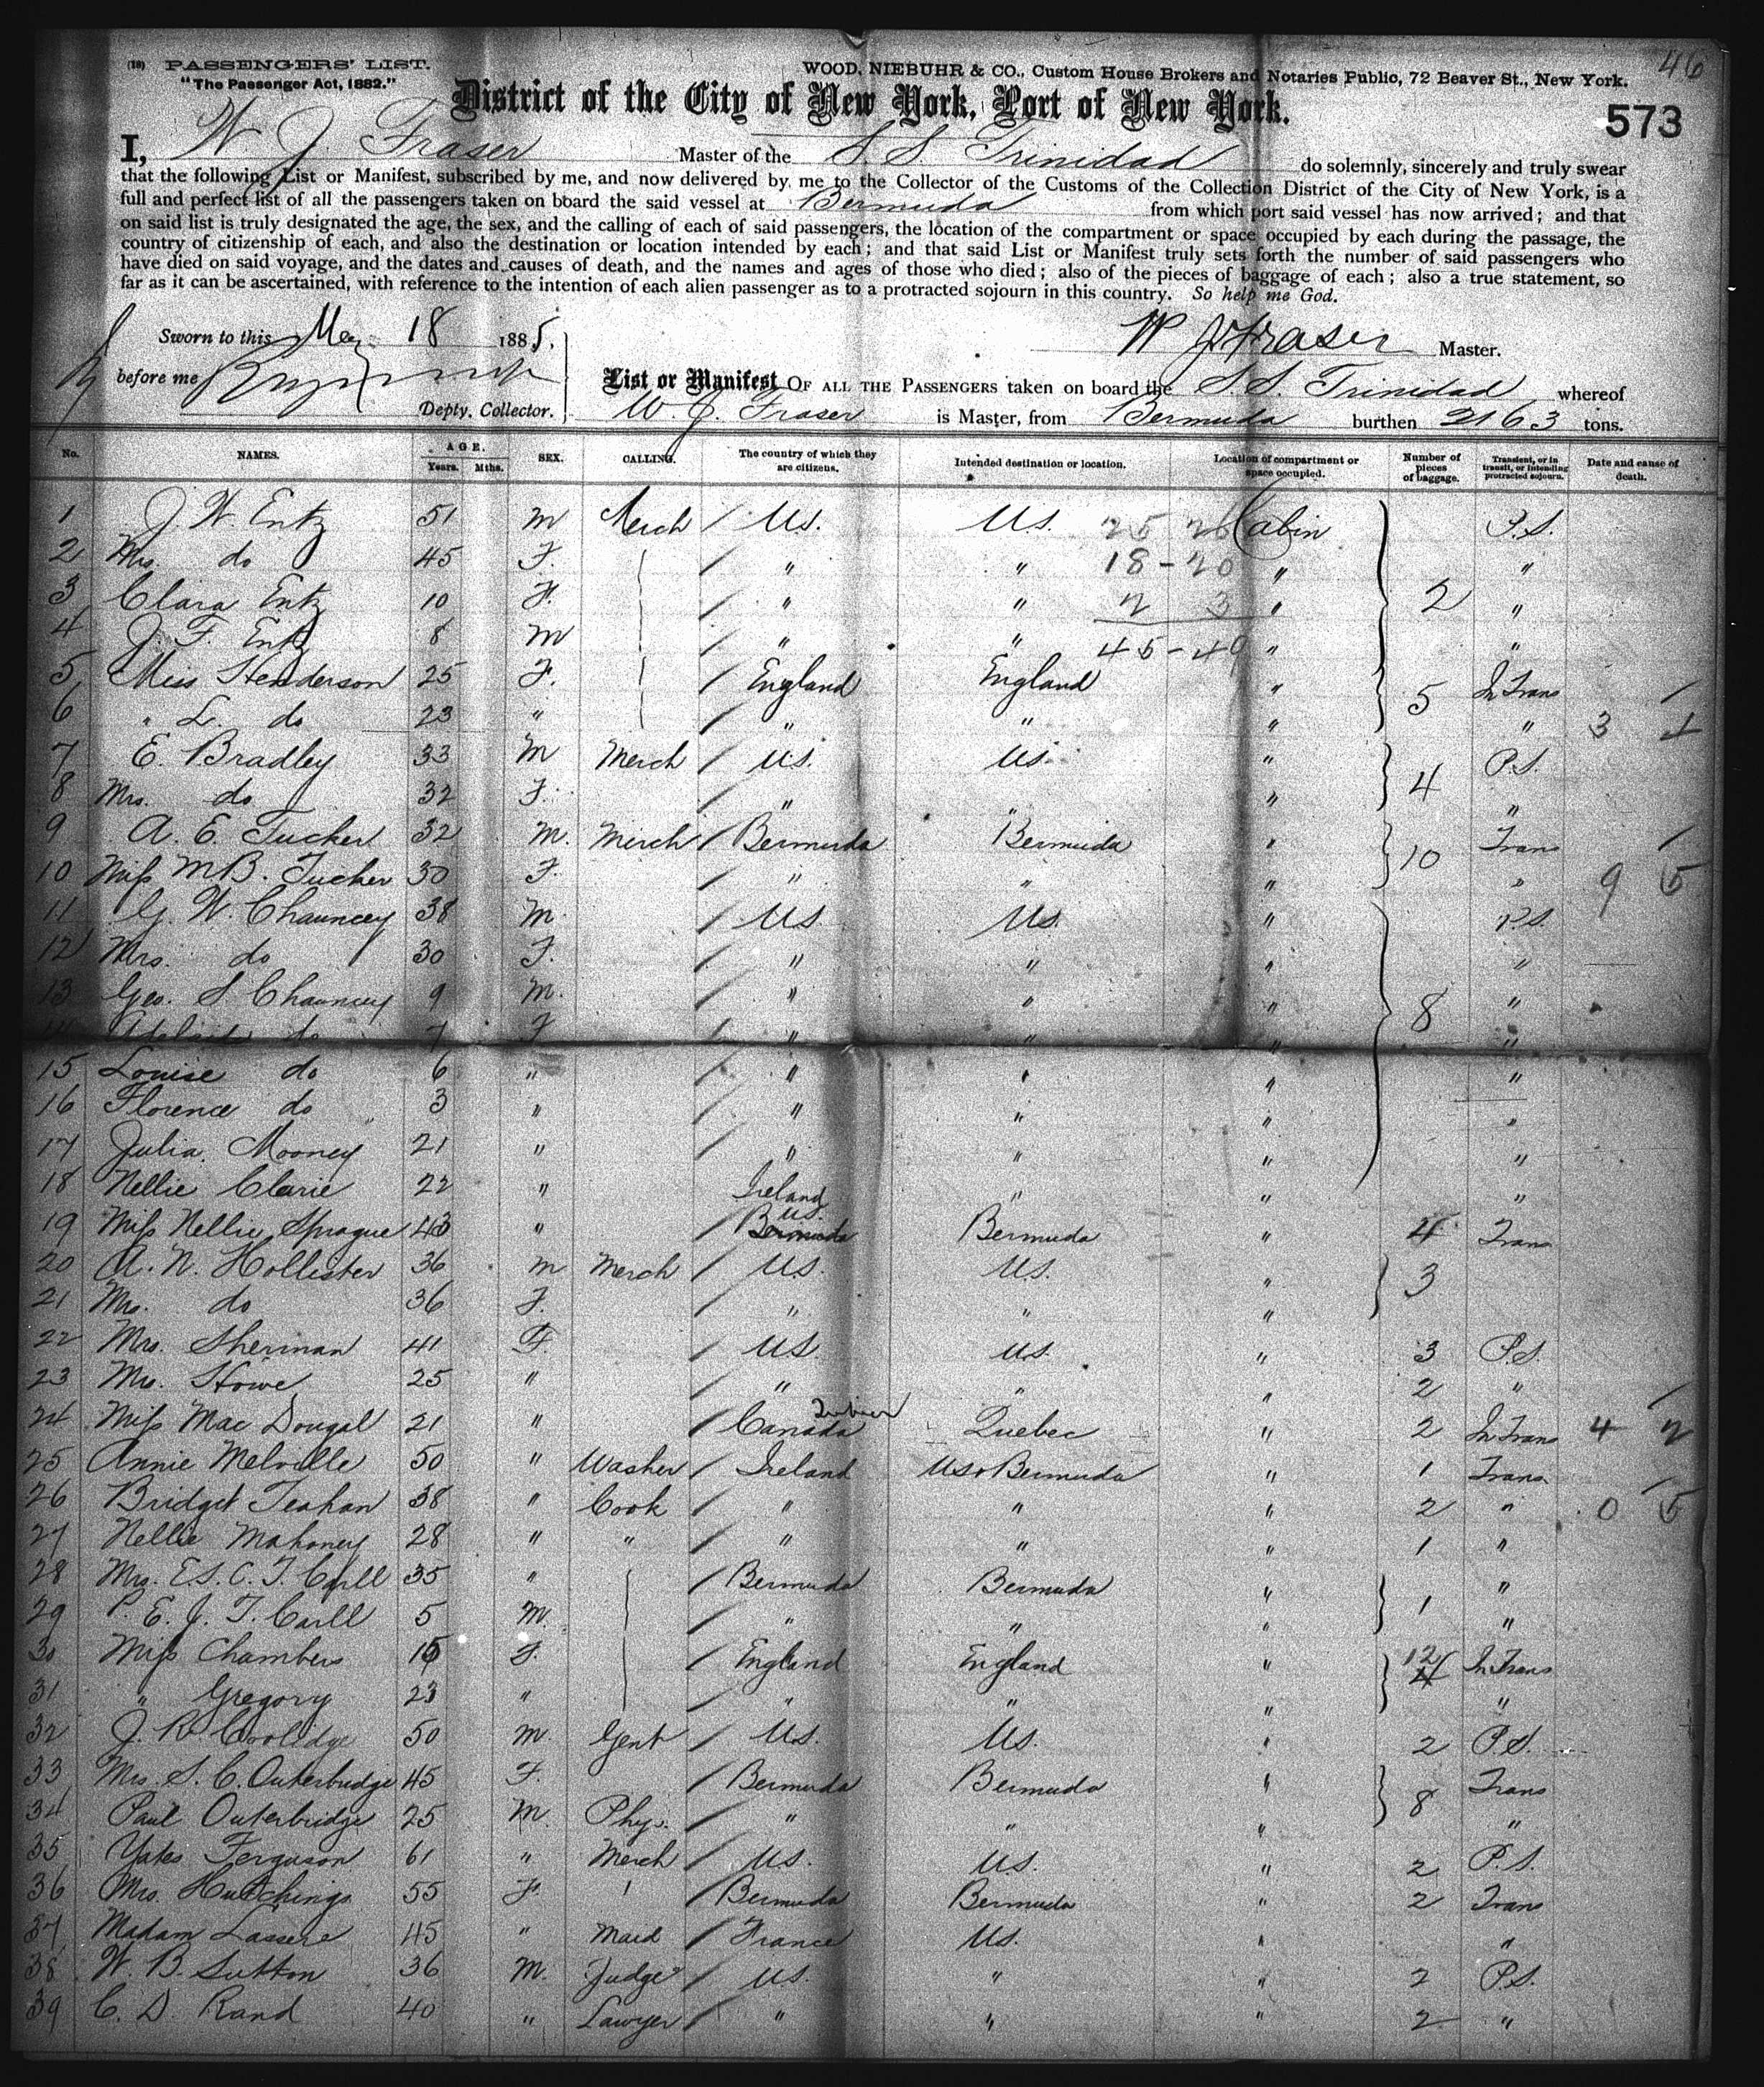 46
(18) PASSENGERS' LIST.
"The Passenger Act, 1882."
WOOD, NIEBUHR & CO., Custom House Brokers and Notaries Public, 72 Beaver St., New York.
District of the City of New York, Port of New York.
573
I, W. J. Fraser Master of the S. S. Trinidad do solemnly, sincerely and truly swear
that the following List or Manifest, subscribed by me, and now delivered by me to the Collector of the Customs of the Collection District of the City of New York, is a
full and perfect list of all the passengers taken on board the said vessel at Bermuda from which port said vessel has now arrived; and that
on said list is truly designated the age, the sex, and the calling of each of said passengers, the location of the compartment or space occupied by each during the passage, the
country of citizenship of each, and also the destination or location intended by each; and that said List or Manifest truly sets forth the number of said passengers who
have died on said voyage, and the dates and causes of death, and the names and ages of those who died; also of the pieces of baggage of each; also a true statement, so
far as it can be ascertained, with reference to the intention of each alien passenger as to a protracted sojourn in this country. So help me God.
Sworn to this May 18 1885,
W J Fraser Master.
before me
Depty. Collector.
List or Manifest OF ALL THE PASSENGERS taken on board the S. S. Trinidad whereof
W. J. Fraser is Master, from Bermuda burthen 2163 tons.
No. NAMES. AGE. Years. Mths. SEX. CALLING. The country of which they are citizens. Intended destination or location. Location of compartment or space occupied. Number of pieces of baggage. Transient, or in transit, or intending protracted sojourn. Date and cause of death.
1 J W. Entz 51 m Merch / U.S. U.S. 25 26 Cabin P.S.
2 Mrs. do 45 F. / " " 18-20 " "
3 Clara Entz 10 F. / " " 2 3 " 2 "
4 J. F. Entz 8 M / " " 45-49 " "
5 Miss Henderson 25 F. / England England " 5 In Trans
6 " L. do 23 " / " " " " 3 1
7 E. Bradley 33 M Merch / U.S. U.S. " P.S.
8 Mrs. do 32 F. / " " " 4 "
9 A. E. Tucker 32 M. Merch / Bermuda Bermuda " Trans
10 Miss M B. Tucker 30 F. / " " " 10 " 9 5
11 G. W. Chauncey 38 M. / U.S. U.S. " P.S.
12 Mrs. do 30 F. / " " " "
13 Geo. S. Chauncey 9 M. / " " " 8 "
14 do 7 F " " " "
15 Louise do 6 " / " " " "
16 Florence do 3 " / " " " "
17 Julia Mooney 21 " / " " " "
18 Nellie Clarie 22 " Ireland " " "
19 Miss Nellie Sprague 43 " / U.S. Bermuda Bermuda " 4 Trans
20 A. N. Hollister 36 m Merch / U.S. U.S. " 3
21 Mrs. do 36 F. / " " "
22 Mrs. Sherman 41 F / U.S. U.S. " 3 P.S.
23 Mrs. Howe 25 " / " " " 2 "
24 Miss Mac Dougal 21 " / Canada Quebec " 2 In Trans 4 2
25 Annie Melville 50 " Washer / Ireland U.S. & Bermuda " 1 Trans
26 Bridget Teahan 38 " Cook / " " " 2 " 0 5
27 Nellie Mahoney 28 " " / " " " 1 "
28 Mrs. E.S.C.T. Carll 35 " / Bermuda Bermuda " "
29 P. E. J. T. Carll 5 M. / " " " 1 "
30 Miss Chambers 15 F. / England England " 12 4 In Trans
31 " Gregory 23 " / " " " "
32 J. R. Coolidge 50 M. Gent / U.S. U.S. " 2 P.S.
33 Mrs. S. C. Outerbridge 45 F. / Bermuda Bermuda " Trans
34 Paul Outerbridge 25 M. Phys. " " " 8 "
35 Yates Ferguson 61 " Merch / U.S. U.S. " 2 P.S.
36 Mrs. Hutchings 55 F. / Bermuda Bermuda " 2 Trans
37 Madam Lassere 45 " Maid / France U.S. " "
38 W. B. Sutton 36 M. Judge / U.S. " " 2 P.S.
39 C. D. Rand 40 " Lawyer / " " " 2 "